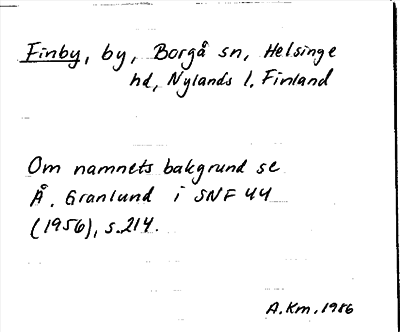 Finby, by, Borgå sn, Helsinge
hd, Nylands l. Finland
Om namnets bakgrund se
Å. Granlund i SNF 44
(1956), s.214.
A.Km. 1986